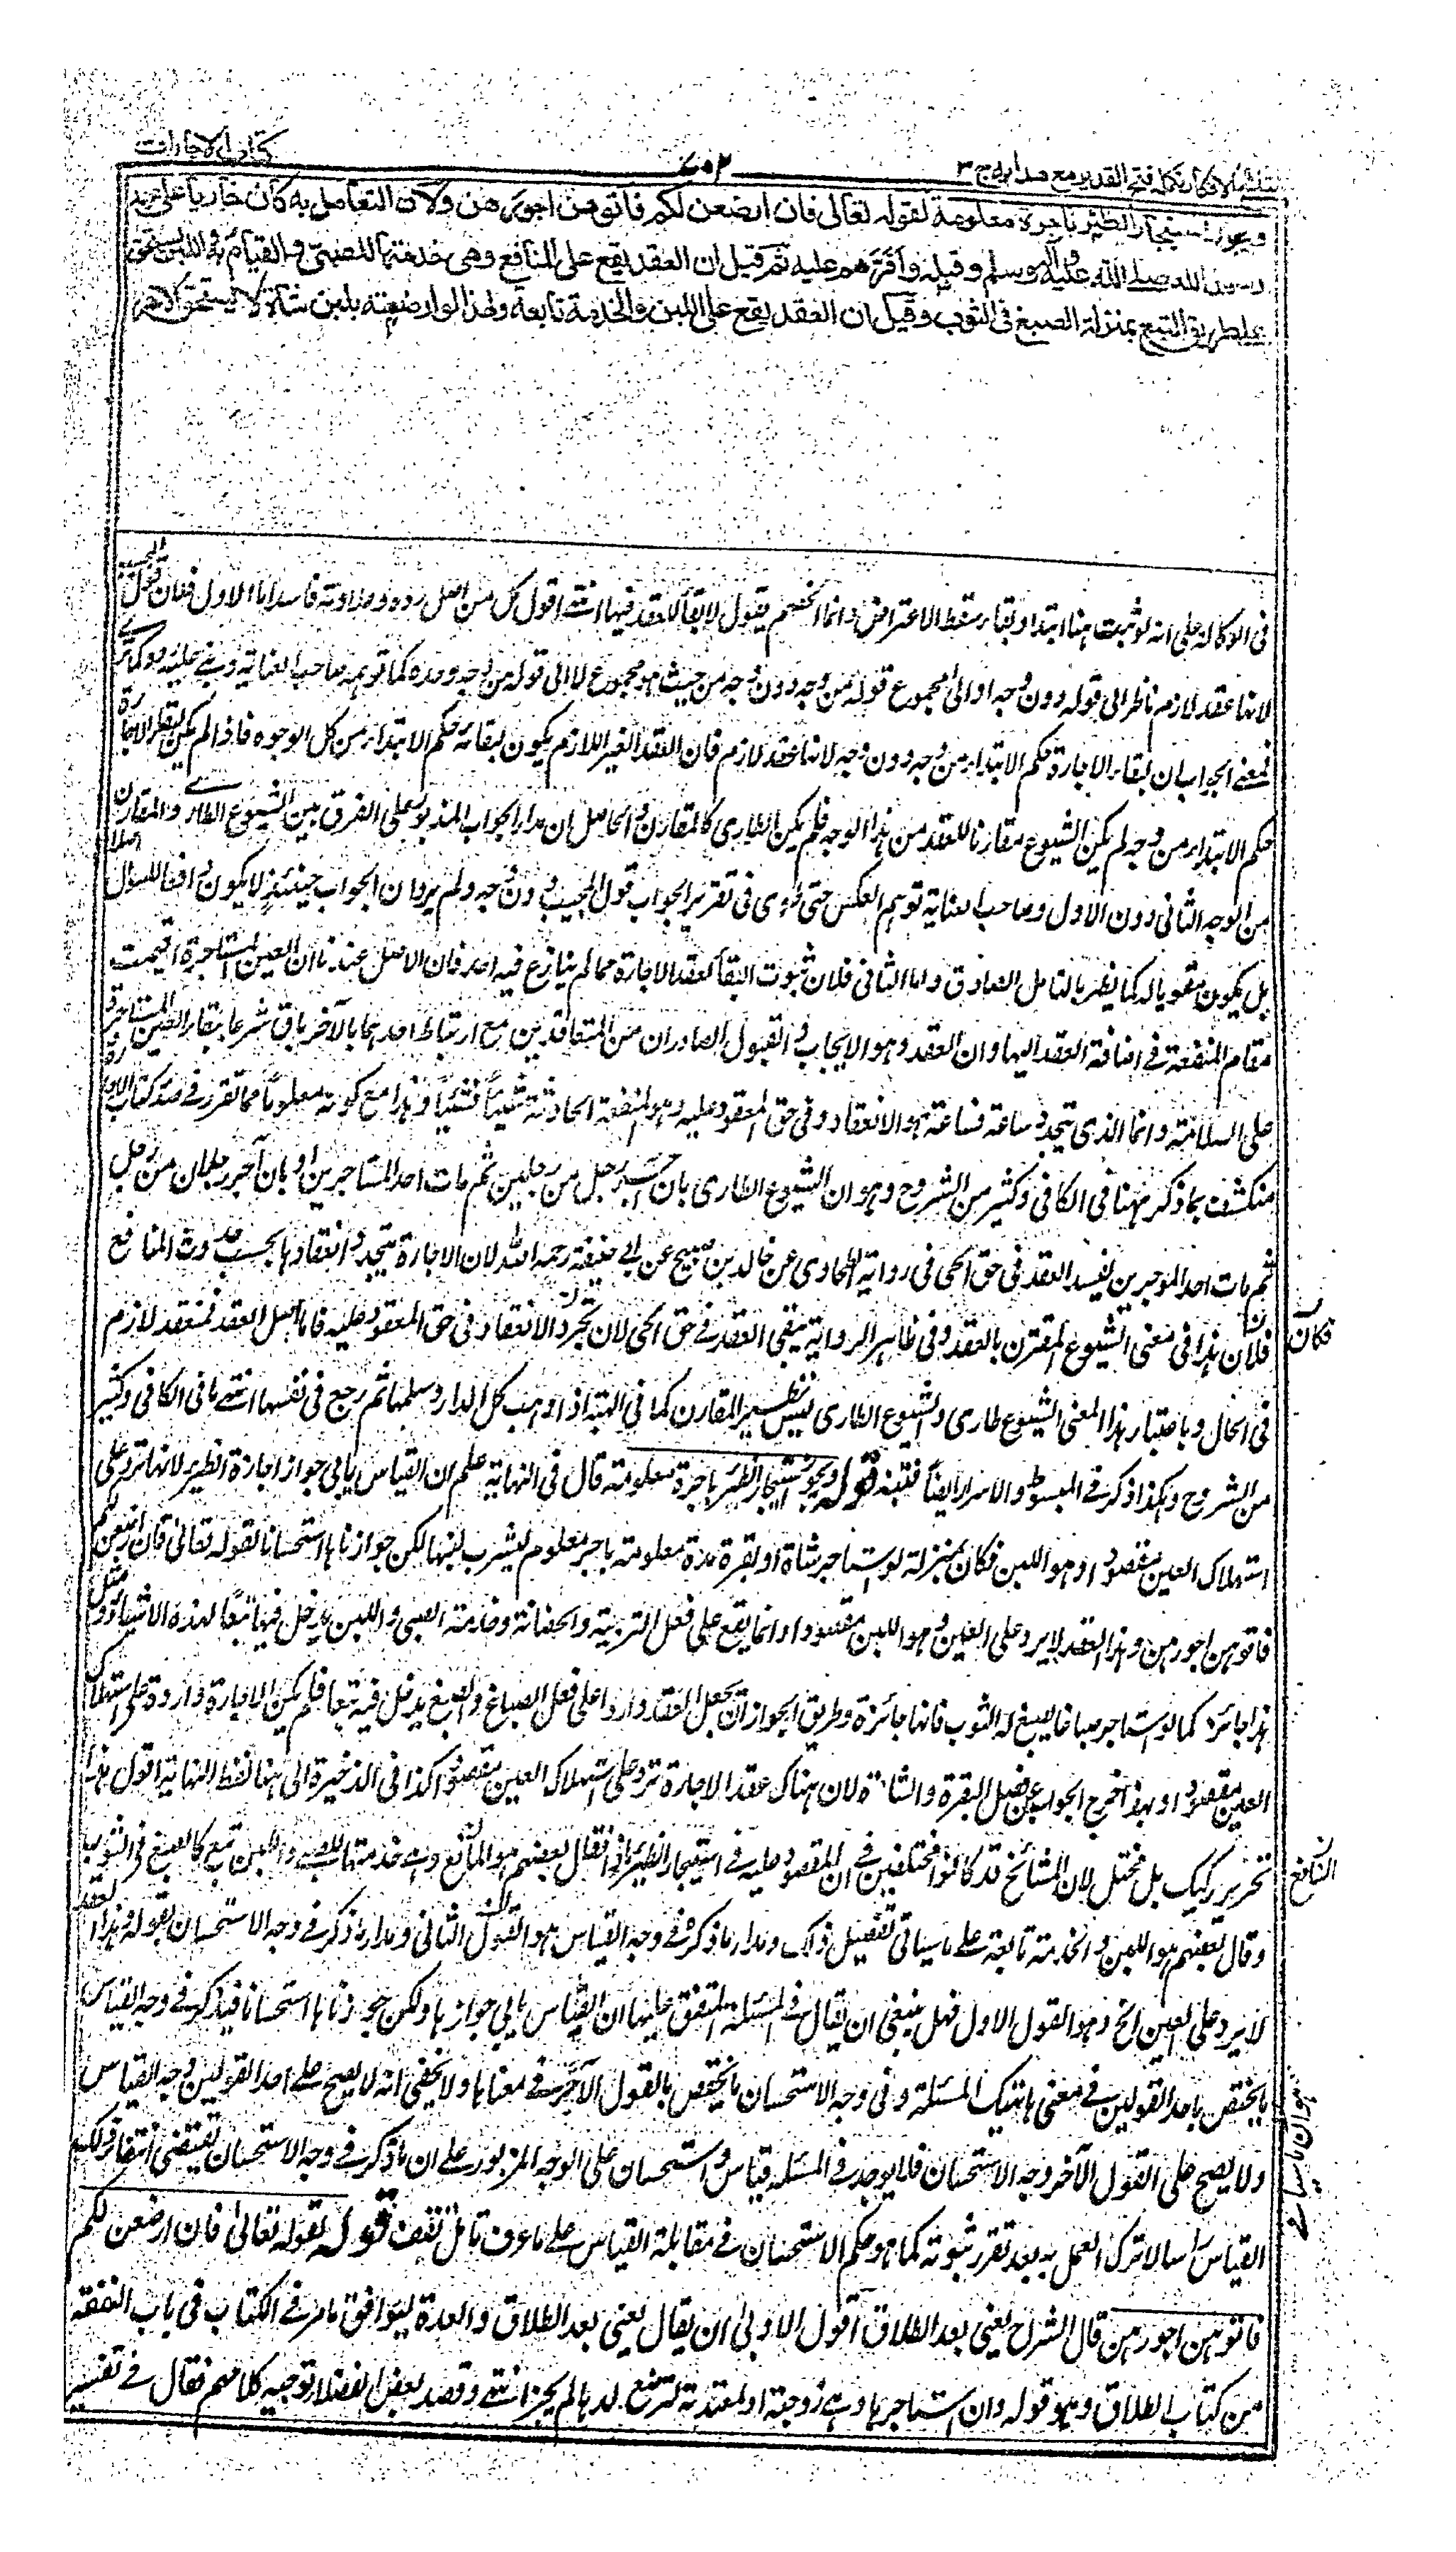 نتائج الافكار تكملة فتح القدير مع هداية ج ٣
٧٠٢
كتاب الاجارات
ويجوز استيجار الظئر باجرة معلومة لقوله تعالى فان ارضعن لكم فاتوهن اجورهن ولان التعامل به كان جاريا على عهد
رسول الله صلى الله عليه وآله وسلم وقبله واقرهم عليه ثم قيل ان العقد يقع على المنافع وهى خدمتها للصبى والقيام به واللبن يستحق
على طريق التبع بمنزلة الصبغ فى الثوب وقيل ان العقد يقع على اللبن والخدمة تابعة ولهذا لو ارضعته بلبن شاة لا يستحق الاجر
فى الوكالة على انه لو ثبت هنا ابتداء وبقاء سقط الاعتراض وانما الخصم يقول لا بقاء للعقد فيها انتهى اقول كل من اصل رده وعلاوته فاسد اما الاول فلان قول المجيب
لانها عقد لازم ناظر الى قوله دون وجه او الى مجموع قوله من وجه دون وجه من حيث هو مجموع لا الى قوله من وجه وحده كما توهمه صاحب العناية وبنى عليه رده كما ترى
فمعنى الجواب ان لبقاء الاجارة حكم الابتداء من وجه دون وجه لانها عقد لازم فان العقد الغير اللازم يكون لبقائه حكم الابتداء من كل الوجوه فاذا لم يكن لبقاء الاجارة
حكم الابتداء من وجه لم يكن الشيوع مقارنا للعقد من هذا الوجه فلم يكن الطارى كالمقارن والحاصل ان مدار الجواب المذبور على الفرق بين الشيوع الطارى والمقارن
من الوجه الثانى دون الاول وصاحب العناية توهم العكس حتى طوى فى تقرير الجواب قول المجيب دون وجه ولم يرد ان الجواب حينئذ لا يكون دافعا للسؤال اصلا
بل يكون مقويا له كما يظهر بالتامل الصادق واما الثانى فلان ثبوت البقاء لعقد الاجارة مما لم ينازع فيه احد فان الاصل عندنا ان العين المستاجرة اقيمت
مقام المنفعة فى اضافة العقد اليها وان العقد وهو الايجاب والقبول الصادران من المتعاقدين مع ارتباط احدهما بالآخر باق شرعا ببقاء العين المستاجرة
على السلامة وانما الذى يتجدد ساعة فساعة هو الانعقاد وفى حق المعقود عليه وهو المنفعة الحادثة شيئا فشيئا وهذا مع كونه معلوما مما تقرر فى صدر كتاب الاجارة
منكشف بما ذكر ههنا فى الكافى وكثير من الشروح وهو ان الشيوع الطارى بان آجر رجل من رجلين ثم مات احد المستاجرين او بان آجر رجلان من رجل
ثم مات احد الموجرين يفسد العقد فى حق الحى فى رواية الطحاوى عن خالد بن صبيح عن ابى حنيفة رحمه الله لان الاجارة يتجدد انعقادها بحسب حدوث المنافع
فكان هذا فى معنى الشيوع المقترن بالعقد وفى ظاهر الرواية يبقى العقد فى حق الحى لان تجدد الانعقاد فى حق المعقود عليه فاما اصل العقد فمنعقد لازم
فى الحال وباعتبار هذا المعنى الشيوع طارى والشيوع الطارى ليس نظير المقارن كما فى الهبة اذا وهب كل الدار وسلمها ثم رجع فى نصفها انتهى ما فى الكافى وكثير
من الشروح وهكذا ذكر فى المبسوط والاسرار ايضا فتنبه قوله ويجوز استيجار الظئر باجرة معلومة قال فى النهاية اعلم ان القياس يابى جواز اجارة الظئر لانها ترد على
استهلاك العين مقصودا وهو اللبن فكان بمنزلة لو استاجر شاة او بقرة مدة معلومة باجر معلوم ليشرب لبنها لكن جوازناها استحسانا لقوله تعالى فان ارضعن لكم
فاتوهن اجورهن وهذا العقد لا يرد على العين وهو اللبن مقصودا وانما يقع على فعل التربية والحضانة وخدمة الصبى واللبن يدخل فيها تبعا لهذه الاشياء ومثل
هذا جائز كما لو استاجر صباغا ليصبغ له الثوب فانها جائزة وطريق الجواز ان يجعل العقد واردا على فعل الصباغ والصبغ يدخل فيه تبعا فلم يكن الاجارة واردة على استهلاك
العين مقصودا وبهذا خرج الجواب عن فصل البقرة والشاة لان هناك عقد الاجارة ترد على استهلاك العين مقصودا كذا فى الذخيرة الى هنا لفظ النهاية اقول هذا
تحرير ركيك بل مختل لان المشائخ قد كانوا مختلفين فى ان المقصود عليه فى استيجار الظئر ماذا فقال بعضهم هو المنافع وهى خدمتها للصبى واللبن تبع كالصبغ فى الثوب
وقال بعضهم هو اللبن والخدمة تابعة على ما سياتى تفصيل ذلك ومدار ما ذكره فى وجه القياس هو القول الثانى ومدار ما ذكره فى وجه الاستحسان بقوله وهذا العقد
لا يرد على العين الخ وهو القول الاول فهل ينبغى ان يقال فى المسئلة المتفق عليها ان القياس يابى جوازها ولكن جوزناها استحسانا فيذكر فى وجه القياس
ما يختص باحد القولين فى معنى هاتيك المسئلة وفى وجه الاستحسان ما يختص بالقول الآخر فى معناها ولا يخفى انه لا يصح على احد القولين وجه القياس
ولا يصح على القول الآخر وجه الاستحسان فلا يوجد فى المسئلة قياس واستحسان على الوجه المزبور على ان ما ذكره فى وجه الاستحسان يقتضى انتفاء ذلك
القياس راسا لا ترك العمل به بعد تقرر ثبوته كما هو حكم الاستحسان فى مقابلة القياس على ما عرف تامل تقف قوله لقوله تعالى فان ارضعن لكم
فاتوهن اجورهن قال الشراح يعنى بعد الطلاق اقول الاولى ان يقال يعنى بعد الطلاق والعدة ليوافق ما مر فى الكتاب فى باب النفقة
من كتاب الطلاق وهو قوله وان استاجرها وهى زوجته او معتدته لترضع ولدها لم يجز انتهى وقصد بعض الفضلاء توجيه كلامهم فقال فى تفسير
فكان
المنافع